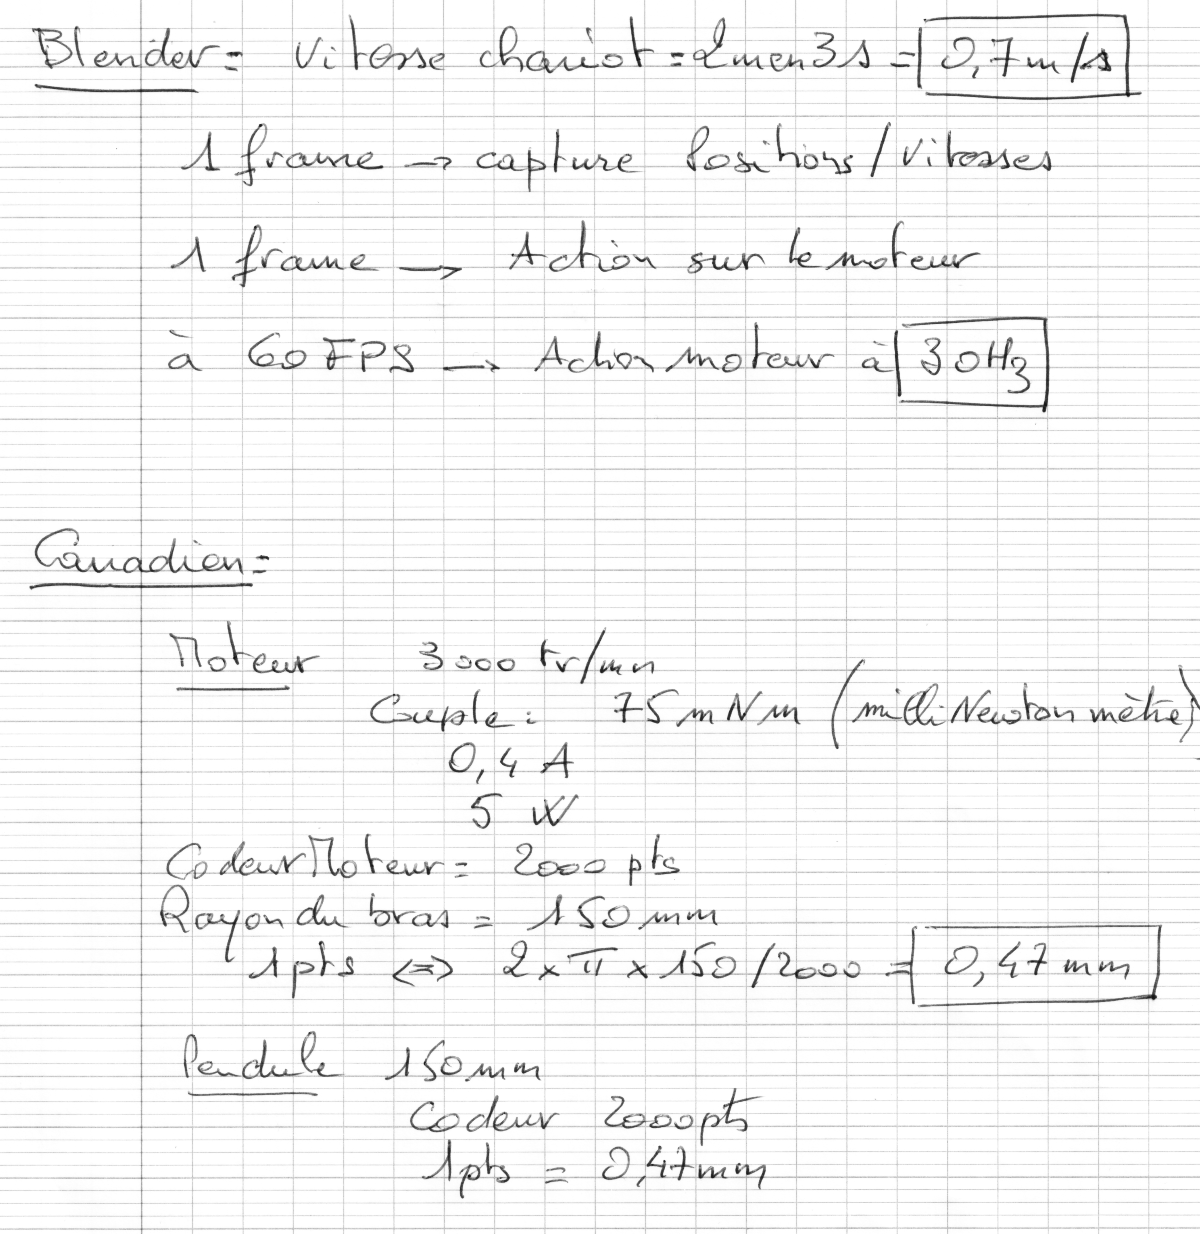 Blender = Vitesse chariot = 2m en 3s = 0,7m/s
1 frame → capture Positions/Vitesses
1 frame → Action sur le moteur
à 60 FPS → Action moteur à 30Hz
Canadien =
Moteur 3000 tr/mn
Couple : 75 mNm (milliNewton mètre)
0,4 A
5 W
Codeur Moteur = 2000 pts
Rayon du bras = 150 mm
1pts <=> 2 x π x 150 / 2000 = 0,47 mm
Pendule 150mm
Codeur 2000pts
1pts = 0,47mm